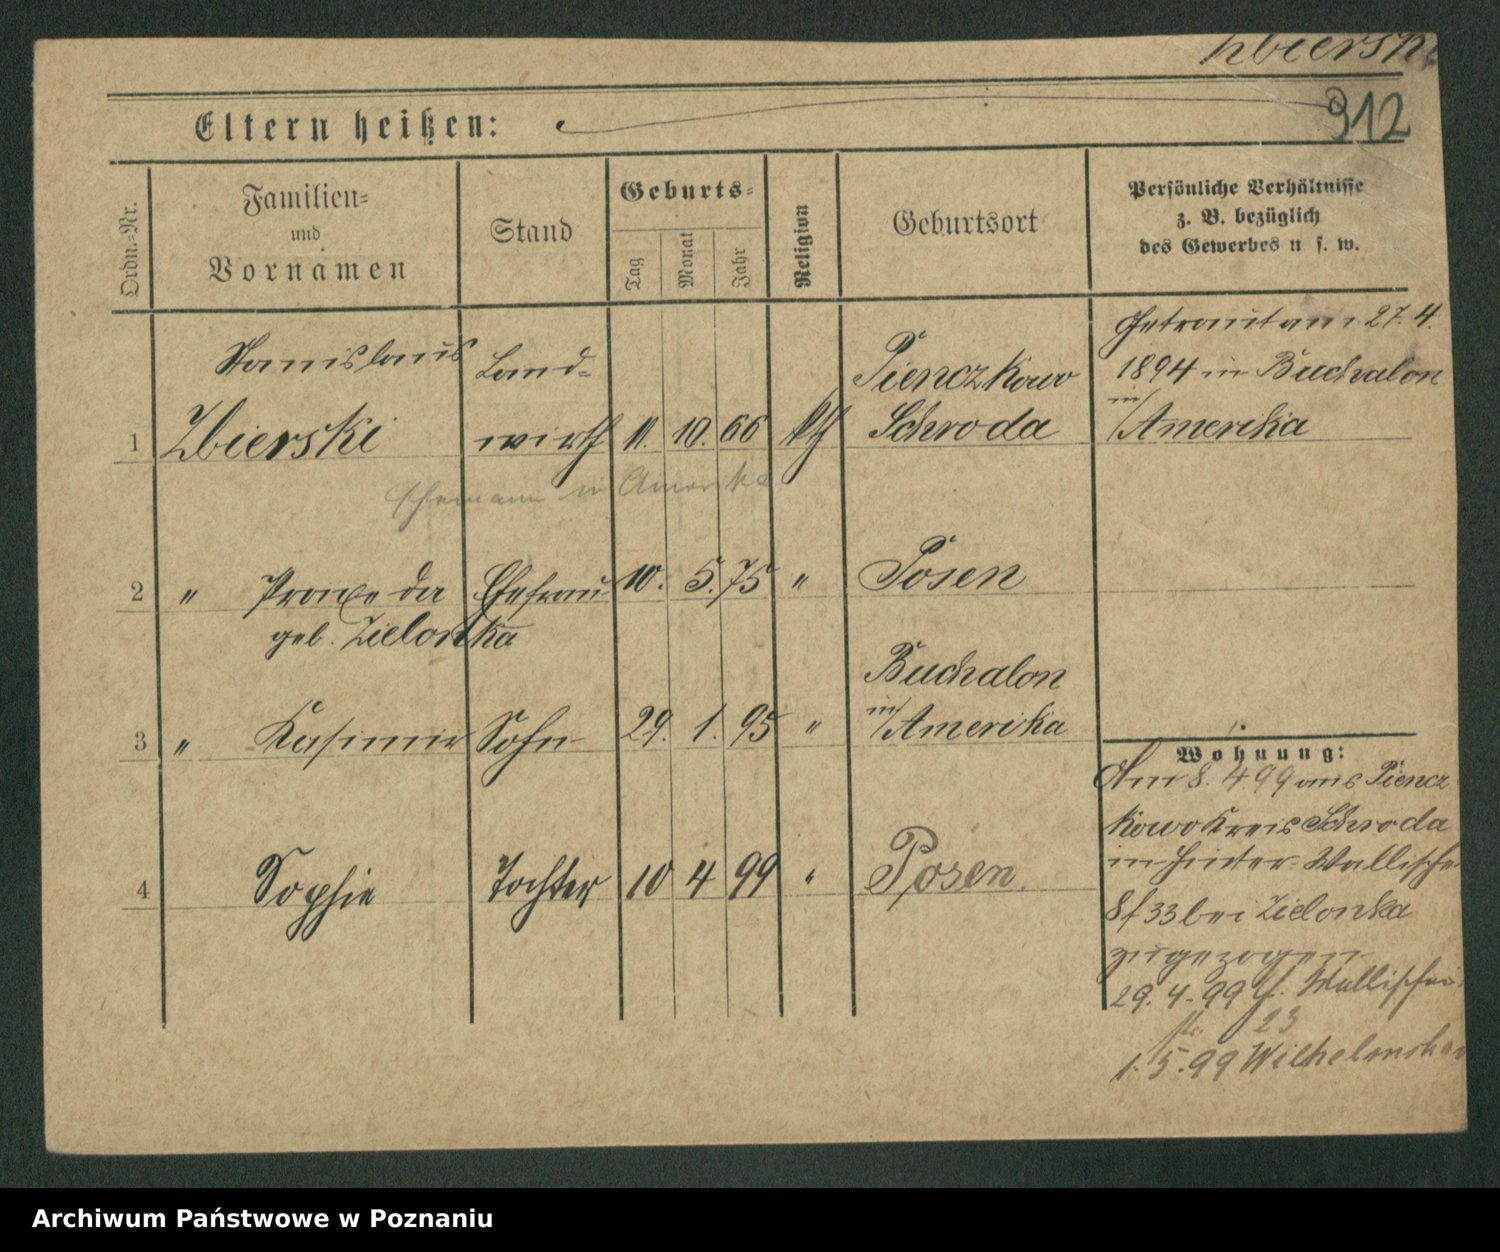 Zbierski
912
Eltern heißen:
Ordn.-Nr.
Familien-
und
Vornamen
Stand
Geburts-
Tag
Monat
Jahr
Religion
Geburtsort
Persönliche Verhältnisse
z. B. bezüglich
des Gewerbes u s. w.
Stanislaus Land- Pienczkowo Getraut am 27. 4.
1894 in Buchalon
1 Zbierski wirth 11. 10. 66 kth Schroda in/Amerika
Ehemann in Amerika
2 " Praxeda Ehefrau 10. 5. 75 " Posen
geb. Zielonka
Buchalon
3 " Kasimir Sohn 29. 1. 95 " in/Amerika
4 Sophie Tochter 10 4 99 " Posen.
Wohnung:
Am 8. 4 99 aus Piencz
kowo Kreis Schroda
in Hinter-Wallische
8/33 bei Zielonka
zugezogen
29. 4. 99 Wallischei
23
1. 5. 99